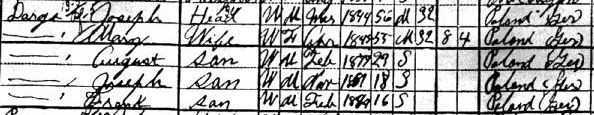 Darga Joseph Head W M Mar 1844 56 M 32 Poland (Ger)
—— Mary Wife W F Apr 55 M 32 8 4 Poland (Ger)
—— August San W M Feb 29 S Poland (Ger)
—— Joseph San W M Mar 18 S Poland (Ger)
—— Frank San W M Feb 1884 16 S Poland (Ger)